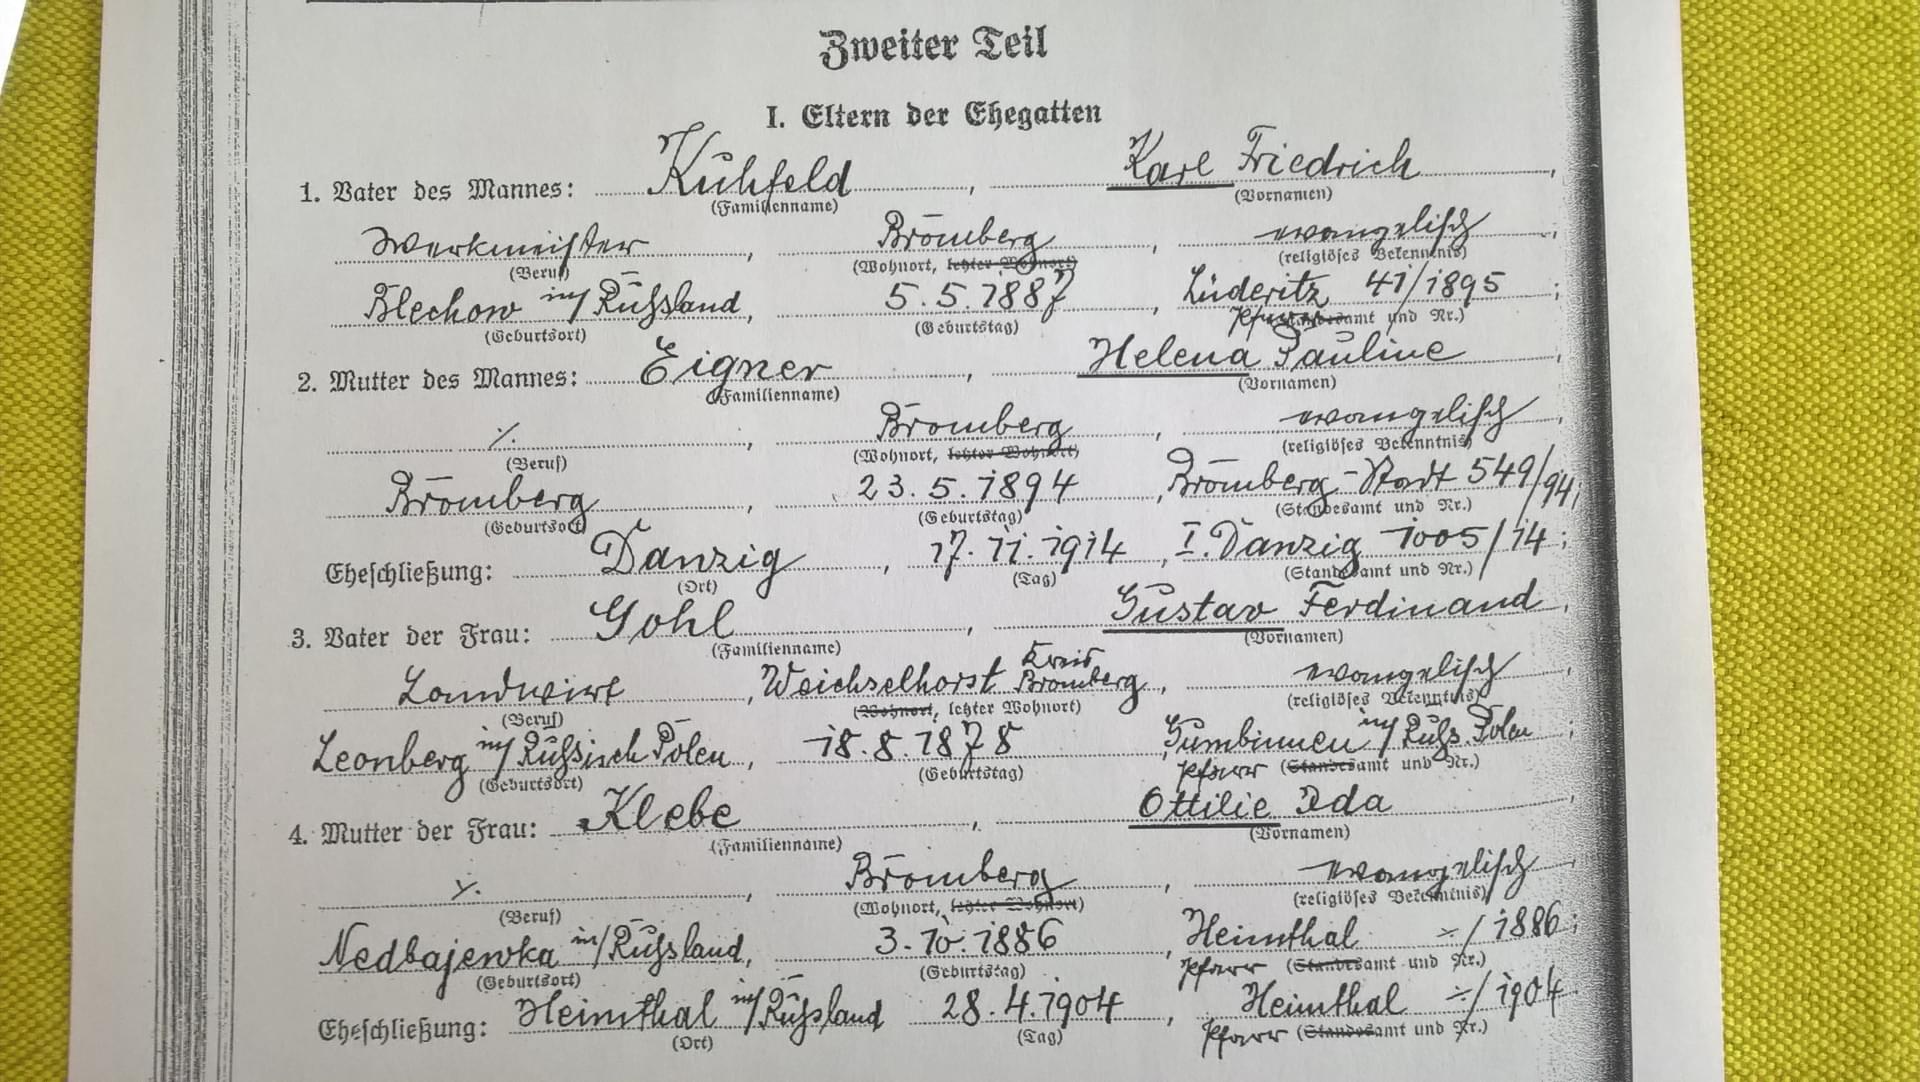 Zweiter Teil
I. Eltern der Ehegatten
1. Vater des Mannes: Kuhfeld, Karl Friedrich,
(Familienname) (Vornamen)
Werkmeister, Bromberg, evangelisch;
(Beruf) (Wohnort, letzter Wohnort) (religiöses Bekenntnis)
Blechow in/Rußland, 5.5.1887, Lüderitz 41/1895;
(Geburtsort) (Geburtstag) Pfarr (Standesamt und Nr.)
2. Mutter des Mannes: Eigner, Helena Pauline,
(Familienname) (Vornamen)
./., Bromberg, evangelisch,
(Beruf) (Wohnort, letzter Wohnort) (religiöses Bekenntnis)
Bromberg, 23.5.1894, Bromberg-Stadt 549/94;
(Geburtsort) (Geburtstag) (Standesamt und Nr.)
Eheschließung: Danzig, 17.11.1914, I. Danzig 1005/14;
(Ort) (Tag) (Standesamt und Nr.)
3. Vater der Frau: Gohl, Gustav Ferdinand,
(Familienname) (Vornamen)
Landwirt, Weichselhorst Kreis Bromberg, evangelisch,
(Beruf) (Wohnort, letzter Wohnort) (religiöses Bekenntnis)
Leonberg in/Russisch Polen, 18.8.1878, Gumbinnen in/Russ. Polen;
(Geburtsort) (Geburtstag) Pfarr (Standesamt und Nr.)
4. Mutter der Frau: Klebe, Ottilie Ida,
(Familienname) (Vornamen)
./., Bromberg, evangelisch,
(Beruf) (Wohnort, letzter Wohnort) (religiöses Bekenntnis)
Nedbajewka in/Rußland, 3.10.1886, Heimthal ÷/1886;
(Geburtsort) (Geburtstag) Pfarr (Standesamt und Nr.)
Eheschließung: Heimthal in/Rußland 28.4.1904, Heimthal ÷/1904
(Ort) (Tag) Pfarr (Standesamt und Nr.)